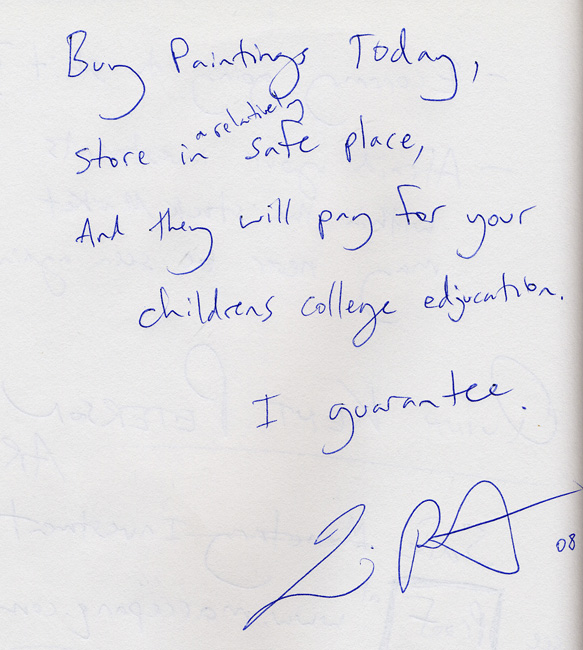 Buy Paintings Today,
a relatively
store in safe place,
And they will pay for your
childrens college edjucation.
I guarantee.
08